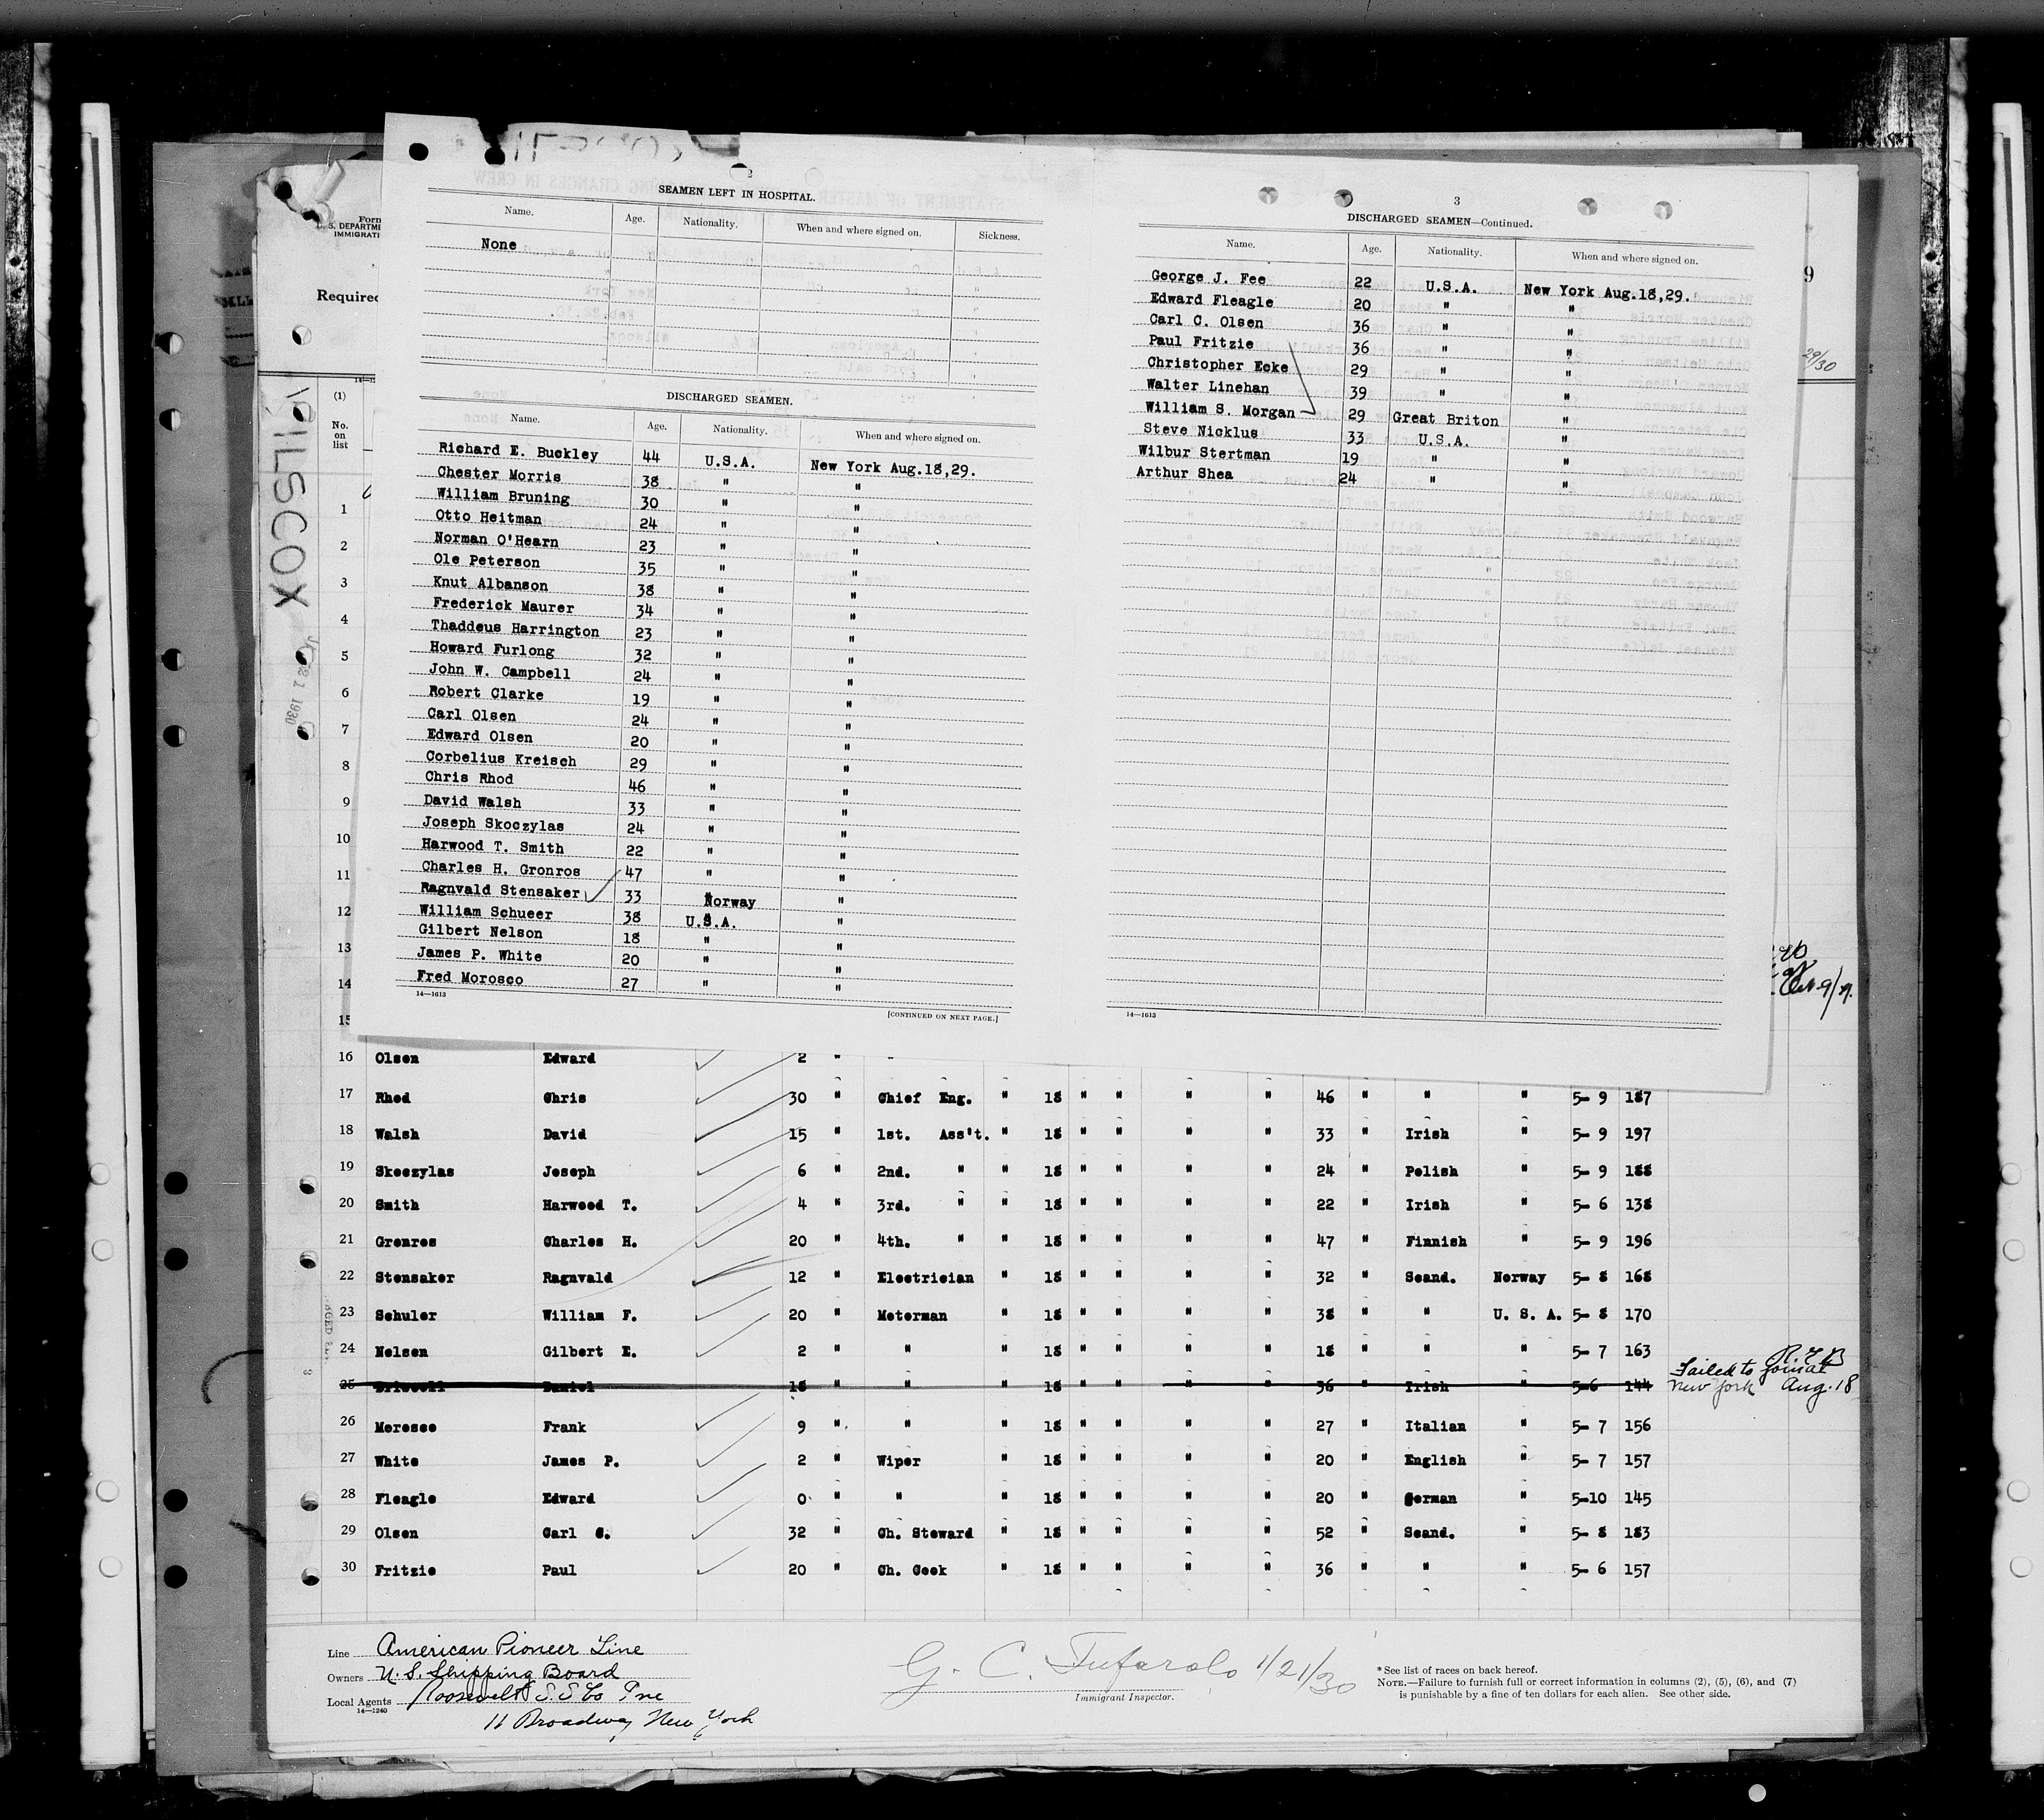 2
SEAMEN LEFT IN HOSPITAL.
Name. Age. Nationality. When and where signed on. Sickness.
None
DISCHARGED SEAMEN.
Name. Age. Nationality. When and where signed on.
Richard E. Buckley 44 U.S.A. New York Aug.18,29.
Chester Morris 38 " "
William Bruning 30 " "
Otto Heitman 24 " "
Norman O'Hearn 23 " "
Ole Peterson 35 " "
Knut Albanson 38 " "
Frederick Maurer 34 " "
Thaddeus Harrington 23 " "
Howard Furlong 32 " "
John W. Campbell 24 " "
Robert Clarke 19 " "
Carl Olsen 24 " "
Edward Olsen 20 " "
Corbelius Kreisch 29 " "
Chris Rhod 46 " "
David Walsh 33 " "
Joseph Skoczylas 24 " "
Harwood T. Smith 22 " "
Charles H. Gronros 47 " "
Ragnvald Stensaker 33 Norway "
William Schueer 38 U.S.A. "
Gilbert Nelson 18 " "
James P. White 20 " "
Fred Morosco 27 " "
14—1613
[CONTINUED ON NEXT PAGE.]
3
DISCHARGED SEAMEN—Continued.
Name. Age. Nationality. When and where signed on.
George J. Fee 22 U.S.A. New York Aug.18,29.
Edward Fleagle 20 " "
Carl C. Olsen 36 " "
Paul Fritzie 36 " "
Christopher Ecke 29 " "
Walter Linehan 39 " "
William S. Morgan 29 Great Briton "
Steve Nicklus 33 U.S.A. "
Wilbur Stertman 19 " "
Arthur Shea 24 " "
14—1613
Form
U. S. DEPARTME
IMMIGRATI
Required
9
29/30
(1)
No.
on
list
PILSCOX
21 1930
1
2
3
4
5
6
7
8
9
10
11
12
13
14
15
16 Olsen Edward 2 " "
17 Rhod Chris 30 " Chief Eng. " 18 " " " " 46 " " " 5- 9 187
18 Walsh David 15 " 1st. Ass't. " 18 " " " " 33 " Irish " 5- 9 197
19 Skoczylas Joseph 6 " 2nd. " " 18 " " " " 24 " Polish " 5- 9 188
20 Smith Harwood T. 4 " 3rd. " " 18 " " " " 22 " Irish " 5- 6 138
21 Gronros Charles H. 20 " 4th. " " 18 " " " " 47 " Finnish " 5- 9 196
22 Stensaker Ragnvald 12 " Electrician " 18 " " " " 32 " Scand. Norway 5- 8 168
23 Schuler William F. 20 " Moterman " 18 " " " " 38 " " U. S. A. 5- 8 170
24 Nelsen Gilbert E. 2 " " " 18 " " " " 18 " " " 5- 7 163
25 Driscoll Daniel 18 " " " 18 " " " " 36 " Irish " 5-6 144 Failed to join at New York Aug. 18
26 Morosco Frank 9 " " " 18 " " " " 27 " Italian " 5- 7 156
27 White James P. 2 " Wiper " 18 " " " " 20 " English " 5- 7 157
28 Fleagle Edward 0 " " " 18 " " " " 20 " German " 5-10 145
29 Olsen Carl C. 32 " Ch. Steward " 18 " " " " 52 " Scand. " 5- 8 183
30 Fritzie Paul 20 " Ch. Cook " 18 " " " " 36 " " " 5- 6 157
Line American Pioneer Line
Owners U. S. Shipping Board
Local Agents Roosevelt S.S Co Inc
14—1240
11 Broadway New York
G. C. Tufarolo 1/21/30
Immigrant Inspector.
*See list of races on back hereof.
NOTE.—Failure to furnish full or correct information in columns (2), (5), (6), and (7)
is punishable by a fine of ten dollars for each alien. See other side.